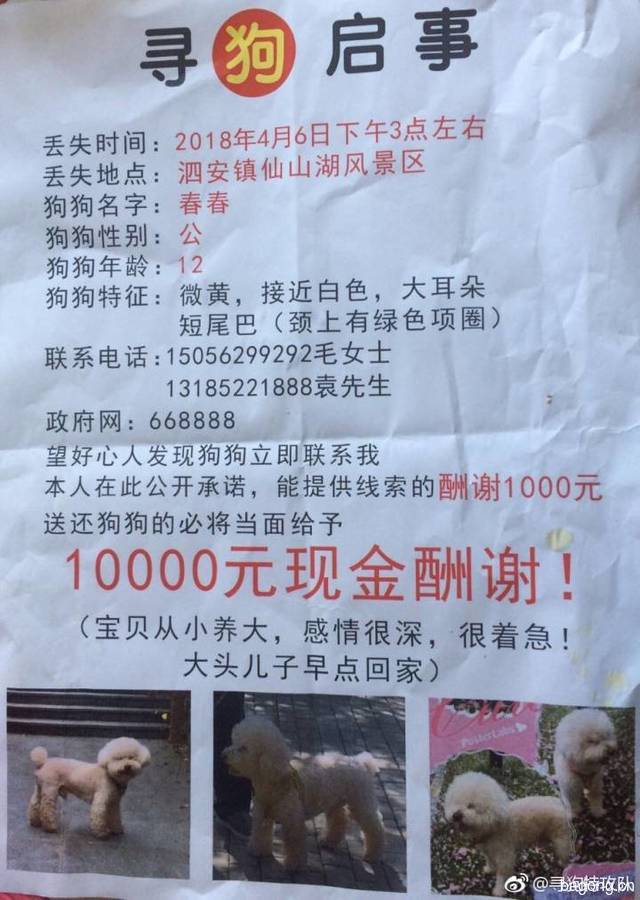 寻狗启事
丢失时间：2018年4月6日下午3点左右
丢失地点：泗安镇仙山湖风景区
狗狗名字：春春
狗狗性别：公
狗狗年龄：12
狗狗特征：微黄，接近白色，大耳朵
短尾巴（颈上有绿色项圈）
联系电话:15056299292毛女士
13185221888袁先生
政府网：668888
望好心人发现狗狗立即联系我
本人在此公开承诺，能提供线索的酬谢1000元
送还狗狗的必将当面给予
10000元现金酬谢！
（宝贝从小养大，感情很深，很着急！
大头儿子早点回家）
PosterLabs
@寻狗特攻队